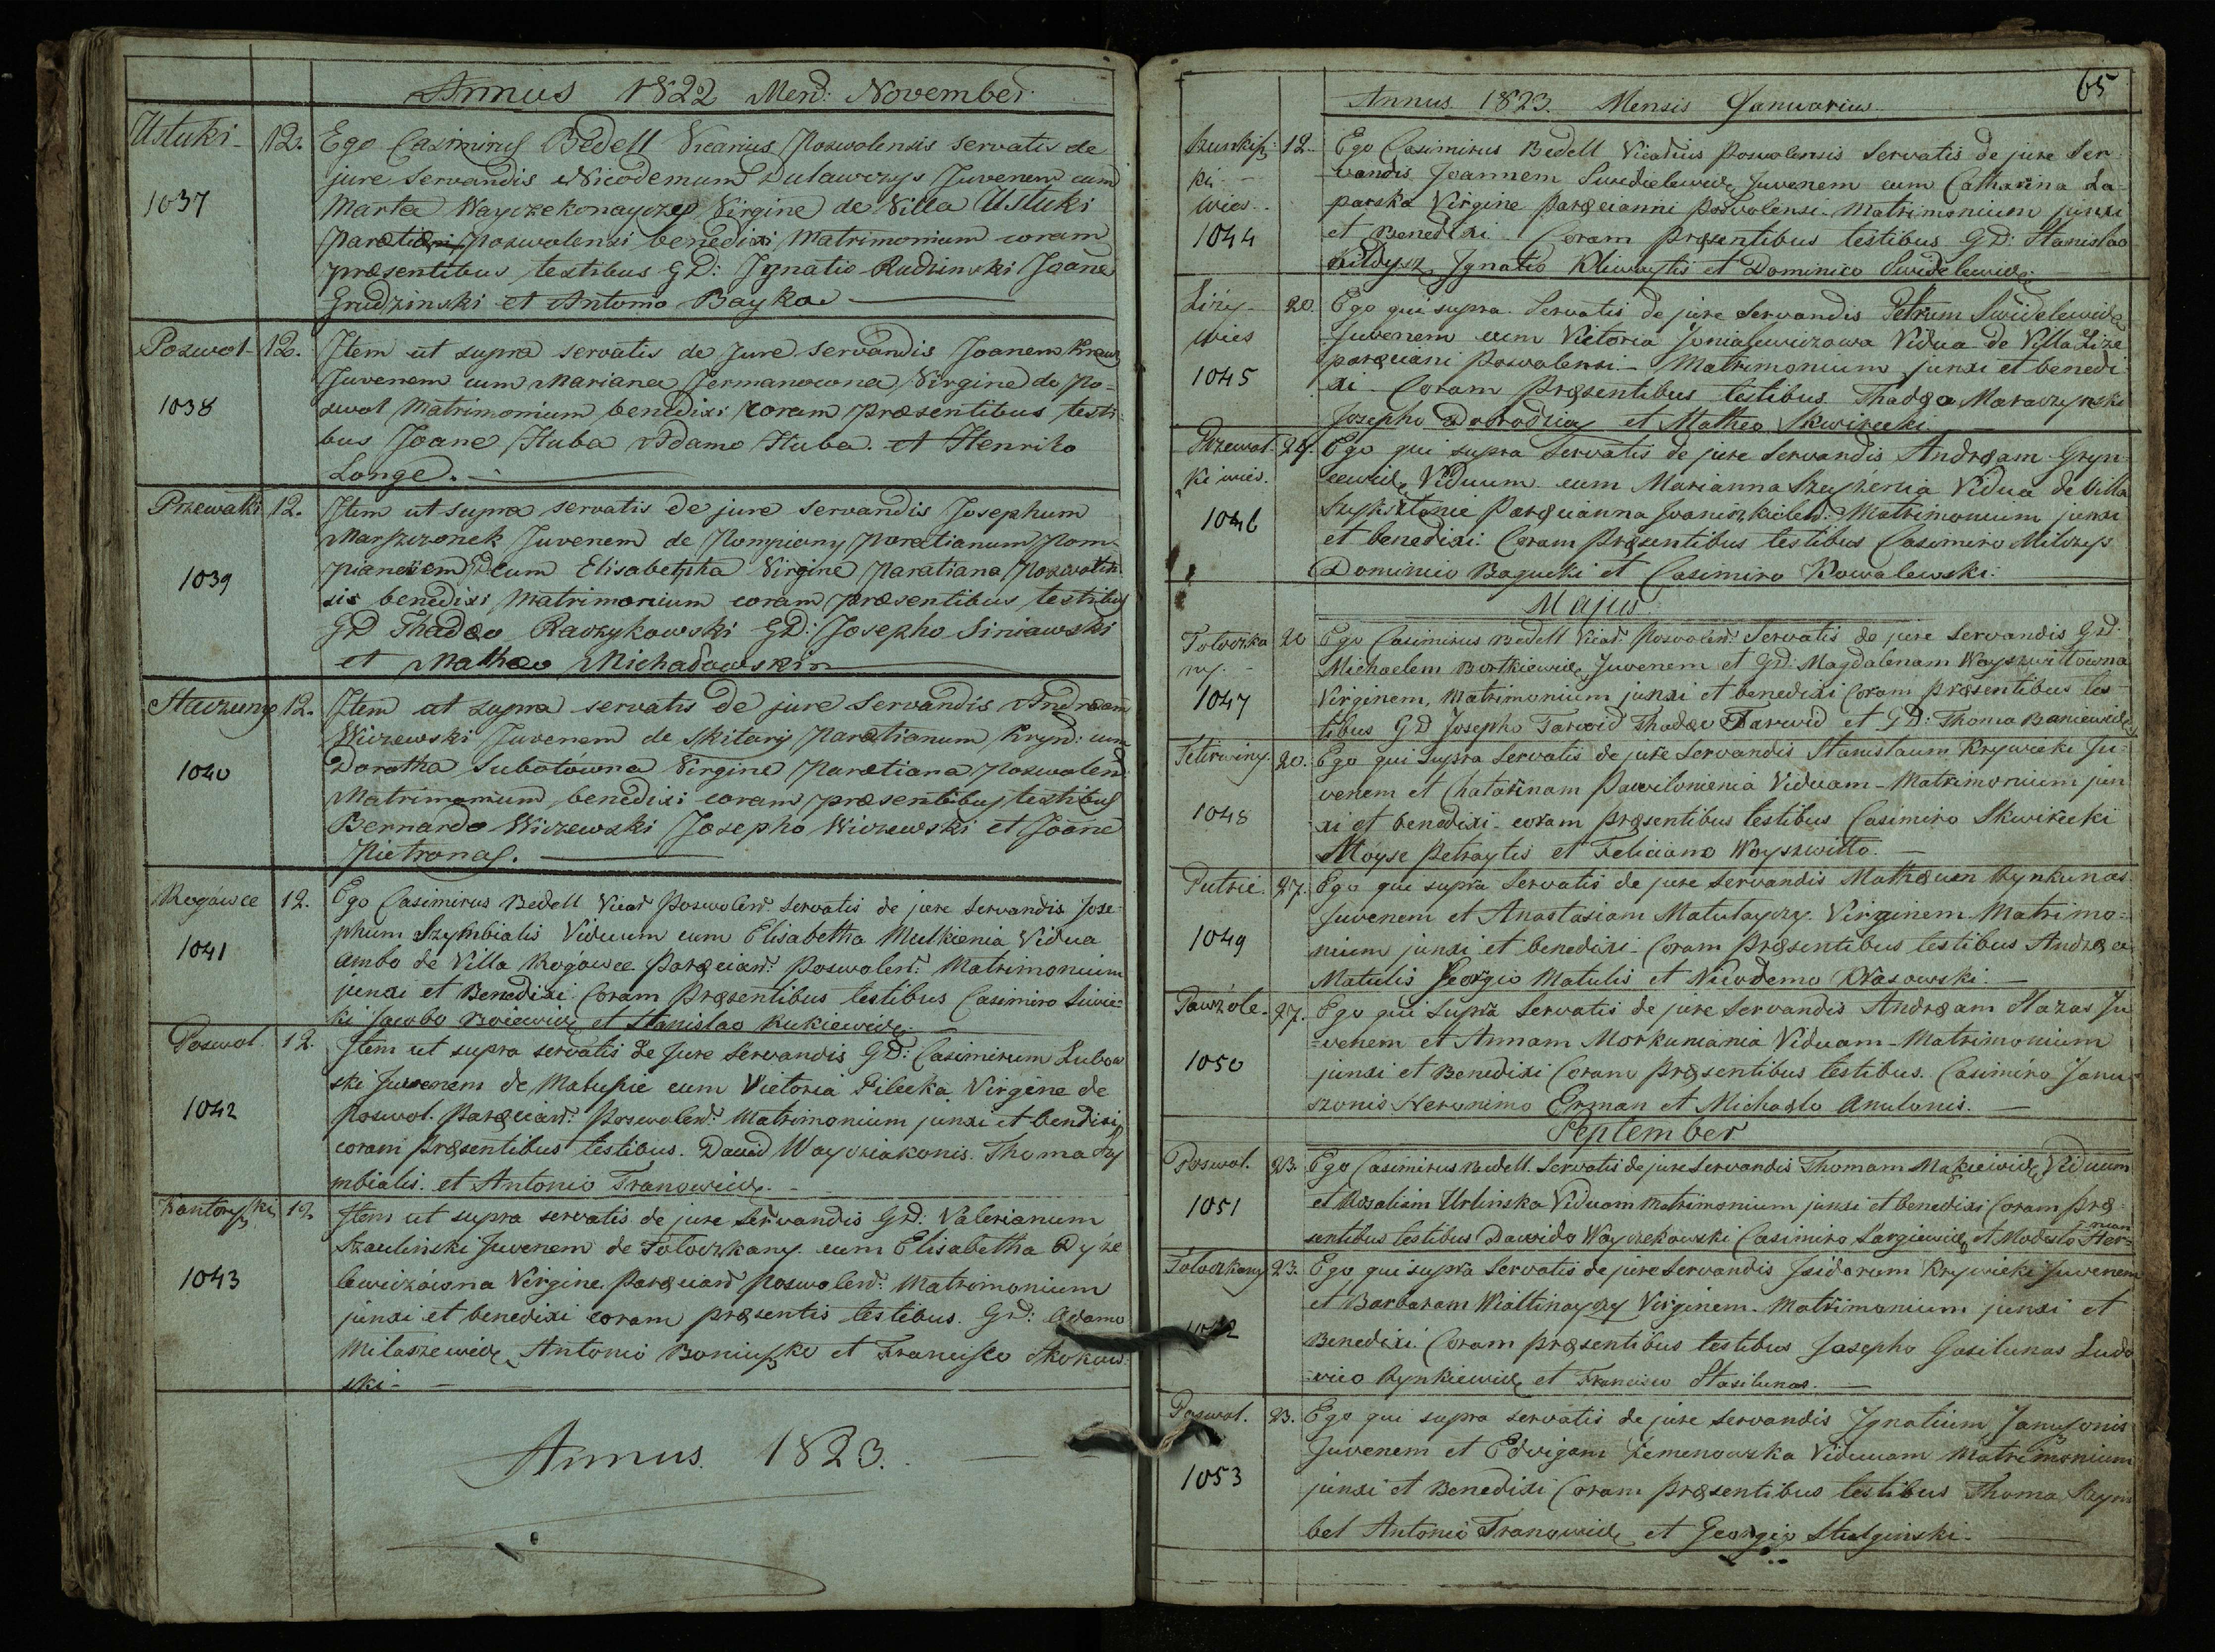 Annus 1822 Mens: November
Ustuki 12. Ego Casimirus Bedell Vicarius Poswolensis servatis de
jure Servandis Nicodemum Dulawczys Juvenem cum
1037 Marta Wayczekonayczez Virgine de Villa Ustuki
Poswolensi benedixi Matrimonium coram
præsentibus testibus GD: Jgnatio Rudzinski Joane
Grudzinski et Antonio Bayka
Poswol 12. Jtem ut supra servatis de Jure servandis Joanem
Juvenem cum Mariana Jermanowna Virgine de Po-
1038 swol Matrimonium benedixi coram præsentibus testi-
bus Joane Stuba Adamo Stuba. et Henrito
Longe.
Przewalki 12. Jtem ut supra servatis de jure servandis Josephum
Marszczonek Juvenem de Pompiany Parætianum Pom-
1039 cum Elisabetha Virgine Parætiana Poswolen
sis benedixi Matrimonium coram præsentibus testibus
GD Thadæo Raczykowski GD: Josepho Siniawski
et Mathæo Michadowskin
12. Jtem ut supra servatis de jure Servandis Andræam
Wiczewski Juvenem de Skitary Parætianum Krynd: cum
1040 Dorotha Subotowna Virgine Parætiana Poswolens
Matrimonium benedixi coram præsentibus testibus
Bernardo Wiczewski Josepho Wiczewski et Joane
Pietronas.
Rogówce 12. Ego Casimirus Bedell Vicar Poswolens: servatis de jure servandis Jose-
phum Szymbialis Viduum cum Elisabetha Mulkienia Vidua
1041 ambo de Villa Rogowce Paræcian: Poswolens: Matrimonium
junxi et Benedixi Coram Præsentibus testibus Casimiro Siwic-
ki Jacobo Boiewicz et Stanislao Rukiewicz
Poswol 12. Jtem ut supra servatis de Jure Servandis GD: Casimirum Lubow
ski Juvenem de Matupie cum Victoria Pilecka Virgine de
1042 Poswol. Paræcian: Poswolens: Matrimonium junxi et bendixi
coram Præsentibus testibus. Dawid Wayciakonis. Thoma Szy
mbialis. et Antonio Franowicz.
12. Jtem ut supra servatis de jure servandis GD: Valerianum
Szaulinski Juvenem de Toloczkany cum Elisabetha Dyze
1043 lewiczówna Virgine Paræcian Poswolens: Matrimonium
junxi et benedixi coram præsentis testibus. GD: Adamo
Milaszewicz Antonio Boniuszko et Francisco Skokow
ski-
Annus. 1823.
65
Annus 1823. Mensis Januarius
12. Ego Casimirus Bedell Vicarius Poswolensis Servatis de jure Ser-
ki vandis Joannem Swidielewicz Juvenem cum Catharina La-
wies parska Virgine Paræcianni Poswolensi Matrimonium junxi
1044 et Benedixi. Coram Præsentibus testibus GD: Stanislao
Jgnatio Kliwaytis et Dominico Swidelewicz
Lizy- 20. Ego qui supra Servatis de jure servandis Petrum Swidelewicz
wies Juvenem cum Victoria Vidua de Villa Lize
1045 paræciani Poswolensi.- Matrimonium junxi et benedi-
xi. Coram Præsentibus testibus Thadæo Maraczynski
Josepho et Matheo Skwirecki
Przewal- 24. Ego qui supra servatis de jure servandis Andræam Gryn-
ki wies. cewicz Viduum cum Marianna Vidua de Villa
1046 Paræcianna Matrimonium junxi
et benedixi. Coram Præsentibus testibus Casimiro Milczys
Dominico Bagucki et Casimiro Kowalewski.
Majus
Toloczka 20 Ego Casimirus Bedell Vicar: Poswolens: Servatis de jure servandis GD:
ny. Michaelem Bortkiewicz Juvenem et GD: Magdalenam Woyszwittowna
1047 Virginem, Matrimonium junxi et benedixi Coram Præsentibus tes-
tibus GD Josepho Tarwid Thadæo Tarwid et GD: Thoma Baniewicz
Teterwiny. 20. Ego qui Supra Servatis de jure servandis Stanislaum Krywicki Ju-
venem et Chatarinam Pawilonienia Viduam - Matrimonium jun
1048 xi et benedixi- coram præsentibus testibus Casimiro Skwirecki
Moyse Petraytis et Feliciano Woyszwitto.
Putrie. 27. Ego qui supra Servatis de jure servandis Mathæum Rynkunas
Juvenem et Anastasiam Matulayczy. Virginem Matrimo-
1049 nium junxi et benedixi- Coram Præsentibus testibus Andræa
Matulis Georgio Matulis et Nicodemo Krasowski.
Pawzole 27. Ego qui Supra Servatis de jure servandis Andræam Stazas Ju
venem et Annam Morkuniania Viduam - Matrimonium
1050 junxi et Benedixi Coram Præsentibus testibus. Casimiro Janu-
szonis Heronimo Erman et Michaelo Anulonis.
September
Poswol. 23. Ego Casimirus Bedell. Servatis de jure servandis Thomam Makiewicz Viduum
1051 et Rosaliam Urlinska Viduam Matrimonium junxi et benedixi Coram Præ-
sentibus testibus Dawido Wayczekowski Casimiro Largiewicz et Modesto Her-
man
Toloczkany 23. Ego qui supra Servatis de jure Servandis Jsidorum Krywicki Juvenem
et Barbaram Wialtinayczy Virginem. Matrimonium junxi et
1052 Benedixi. Coram Præsentibus testibus Josepho Gasilunas Ludo
vico Rynkiewicz et Francisco Stasilunas.
Poswol. 23. Ego qui supra servatis de jure servandis Jgnatium Januszonis
Juvenem et Edvigam Zemenowska Viduam Matrimonium
1053 junxi et Benedixi Coram Præsentibus testibus Thoma Szym
bel Antonio Franowicz et Georgio Stulginski.